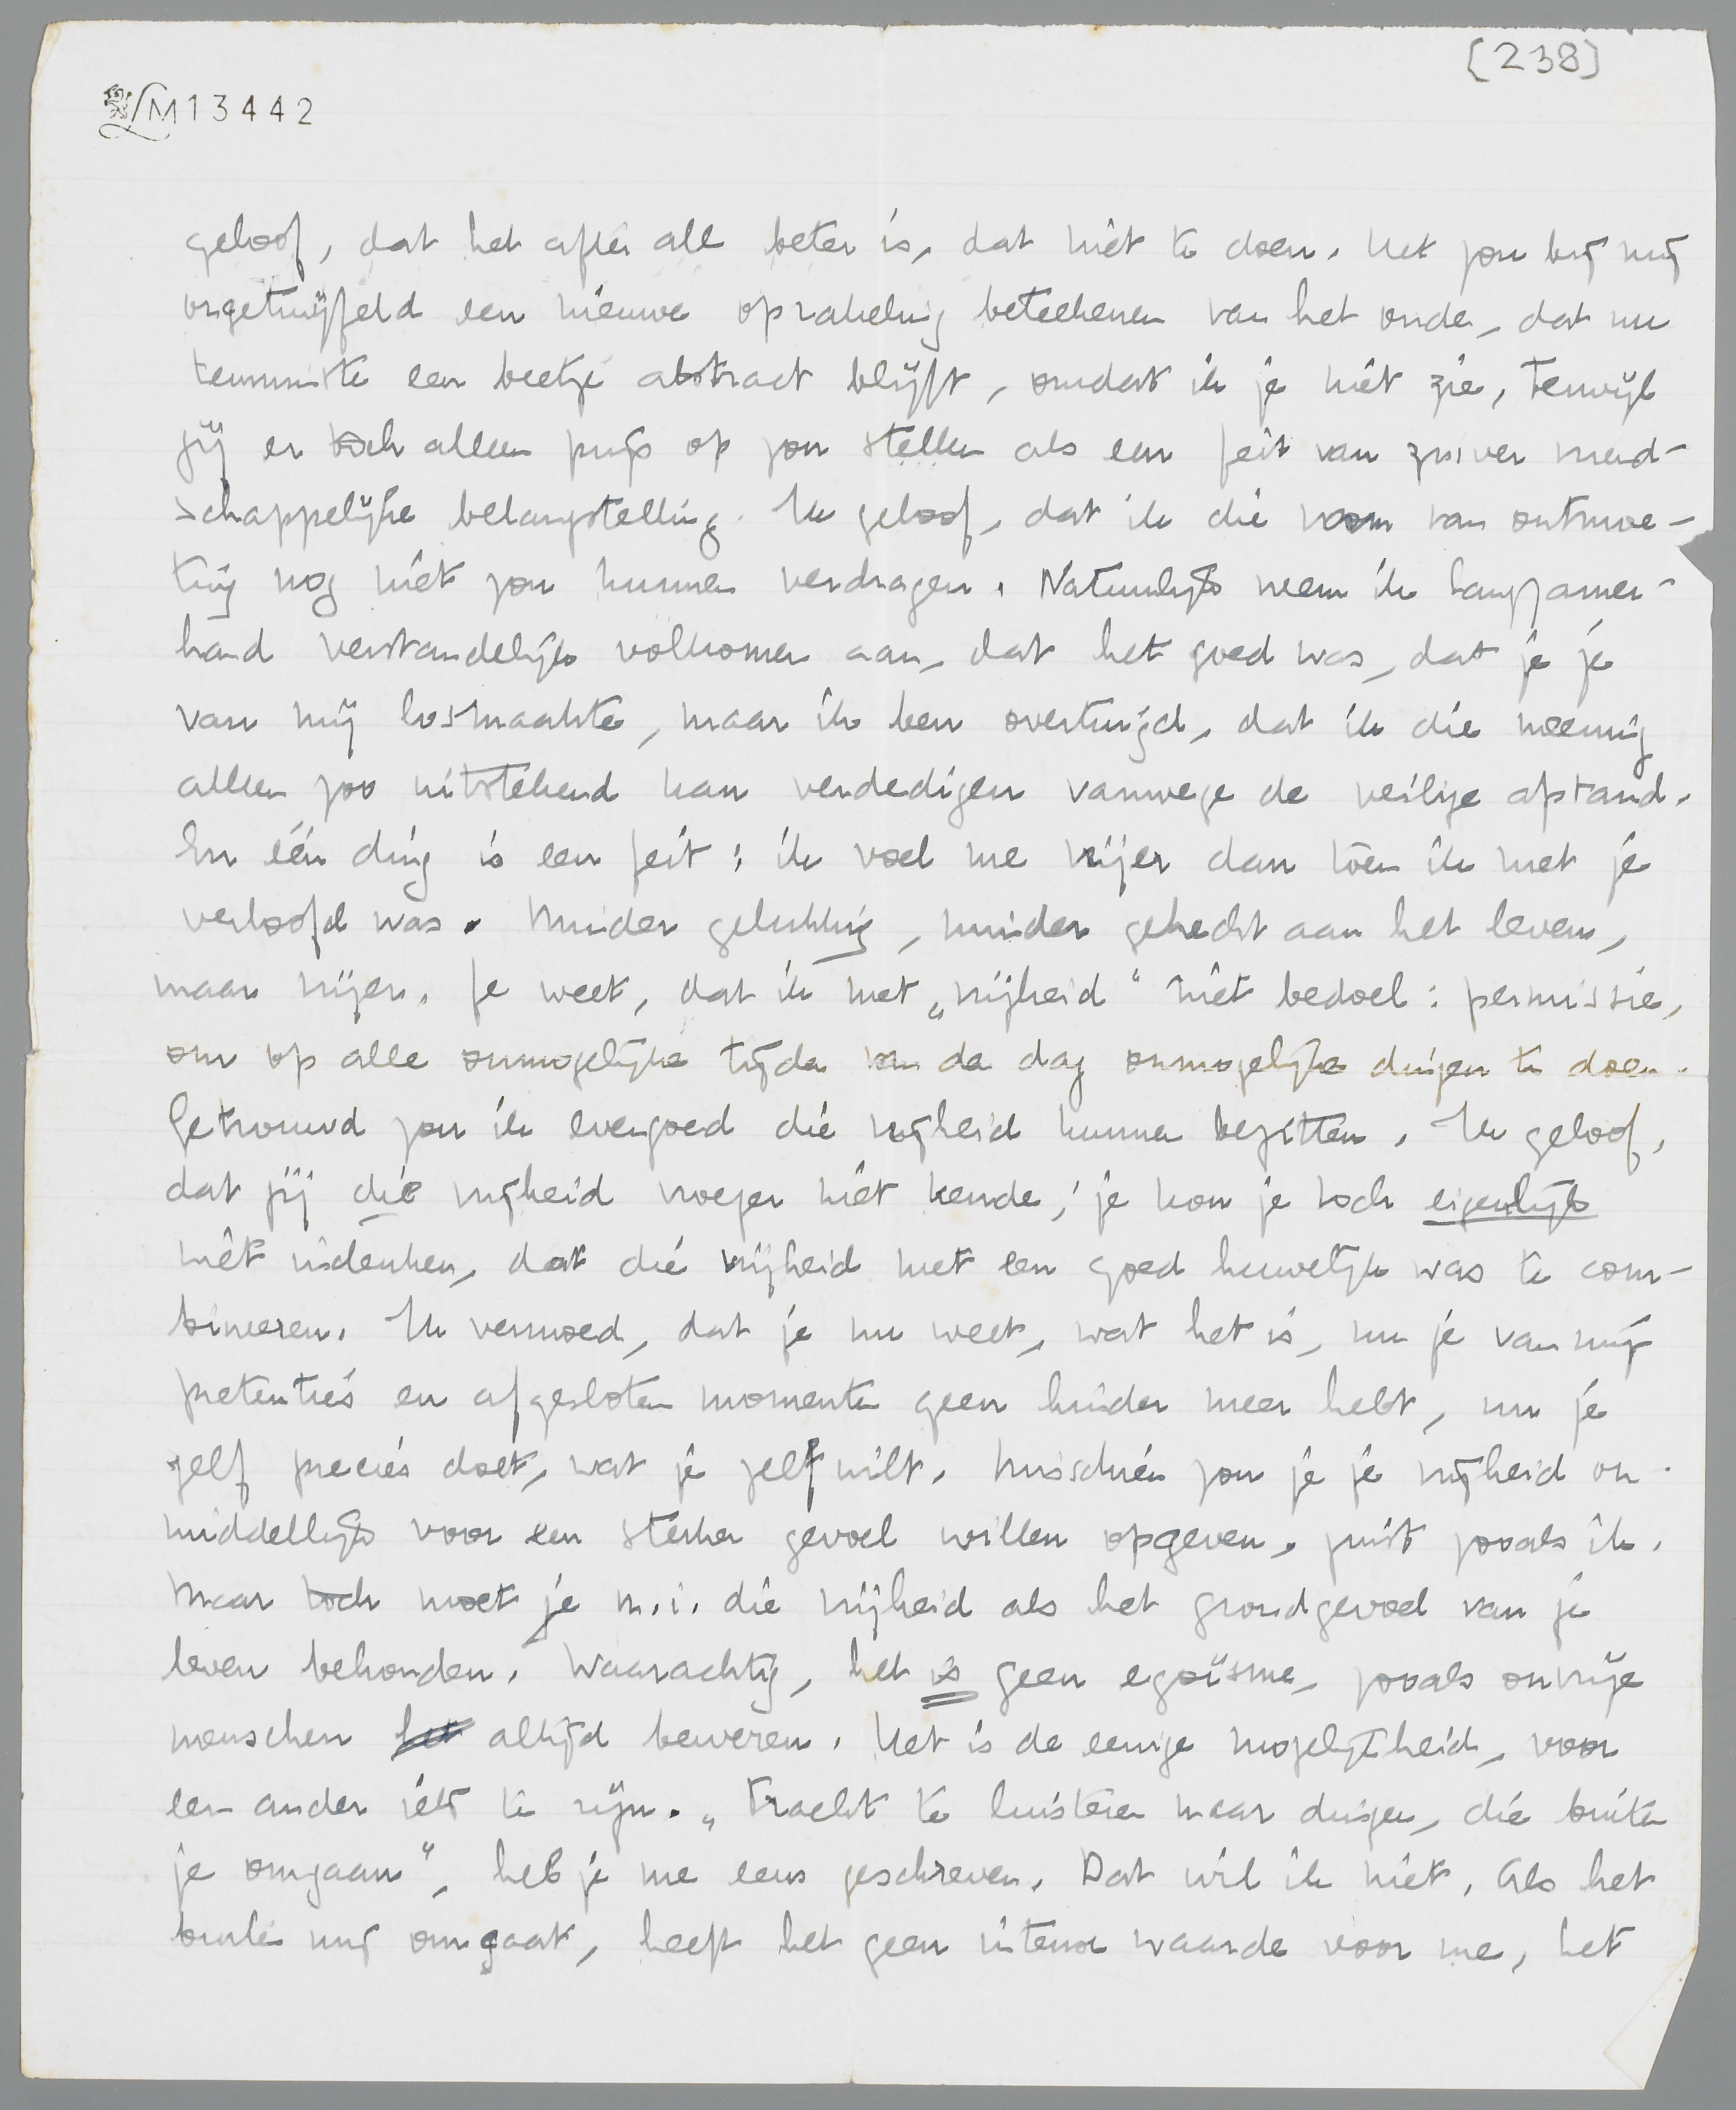 [238]
LM13442
geloof, dat het after all beter is, dat niet te doen. Het zou bij mij
ongetwijfeld een nieuwe oprakeling beteekenen van het oude, dat nu
tenminste een beetje abstract blijft, omdat ik je niet zie, terwijl
jij er toch alleen prijs op zou stellen als een feit van zuiver vriend-
schappelijke belangstelling. Ik geloof, dat ik die vorm van ontmoe-
ting nog niet zou kunnen verdragen. Natuurlijk neem ik langzamer-
hand verstandelijk volkomen aan, dat het goed was, dat je je
van mij losmaakte, maar ik ben overtuigd, dat ik die meening
alleen zoo uitstekend kan verdedigen vanwege de veilige afstand.
En één ding is een feit: ik voel me vrijer dan toen ik met je
verloofd was. Minder gelukkig, minder gehecht aan het leven,
maar vrijer. Je weet, dat ik met „vrijheid" niet bedoel: permissie,
om op alle onmogelijke tijden van de dag onmogelijke dingen te doen.
Getrouwd zou ik evengoed die vrijheid kunnen bezitten. Ik geloof,
dat jij die vrijheid vroeger niet kende; je kon je toch eigenlijk
niet indenken, dat die vrijheid met een goed huwelijk was te com-
bineeren. Ik vermoed, dat je nu weet, wat het is, nu je van mijn
pretenties en afgesloten momenten geen hinder meer hebt, nu je
zelf precies doet, wat je zelf wilt. Misschien zou je je vrijheid on-
middellijk voor een sterker gevoel willen opgeven, juist zooals ik.
Maar toch moet je m.i. die vrijheid als het grondgevoel van je
leven behouden. Waarachtig, het is geen egoïsme, zooals onvrije
menschen altijd beweren. Het is de eenige mogelijkheid, voor
een ander iets te zijn. „Tracht te luisteren naar dingen, die buiten
je omgaan", heb je me eens geschreven. Dat wil ik niet. Als het
buiten mij omgaat, heeft het geen intense waarde voor me, het